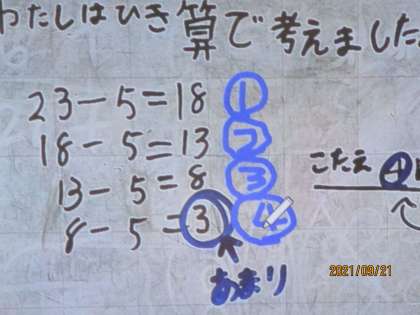 わたしはひき算で考えました
23-5=18 ①
18-5=13 ②
13-5=8 ③
8-5=3 ④
こたえ 4
あまり
2021/09/21